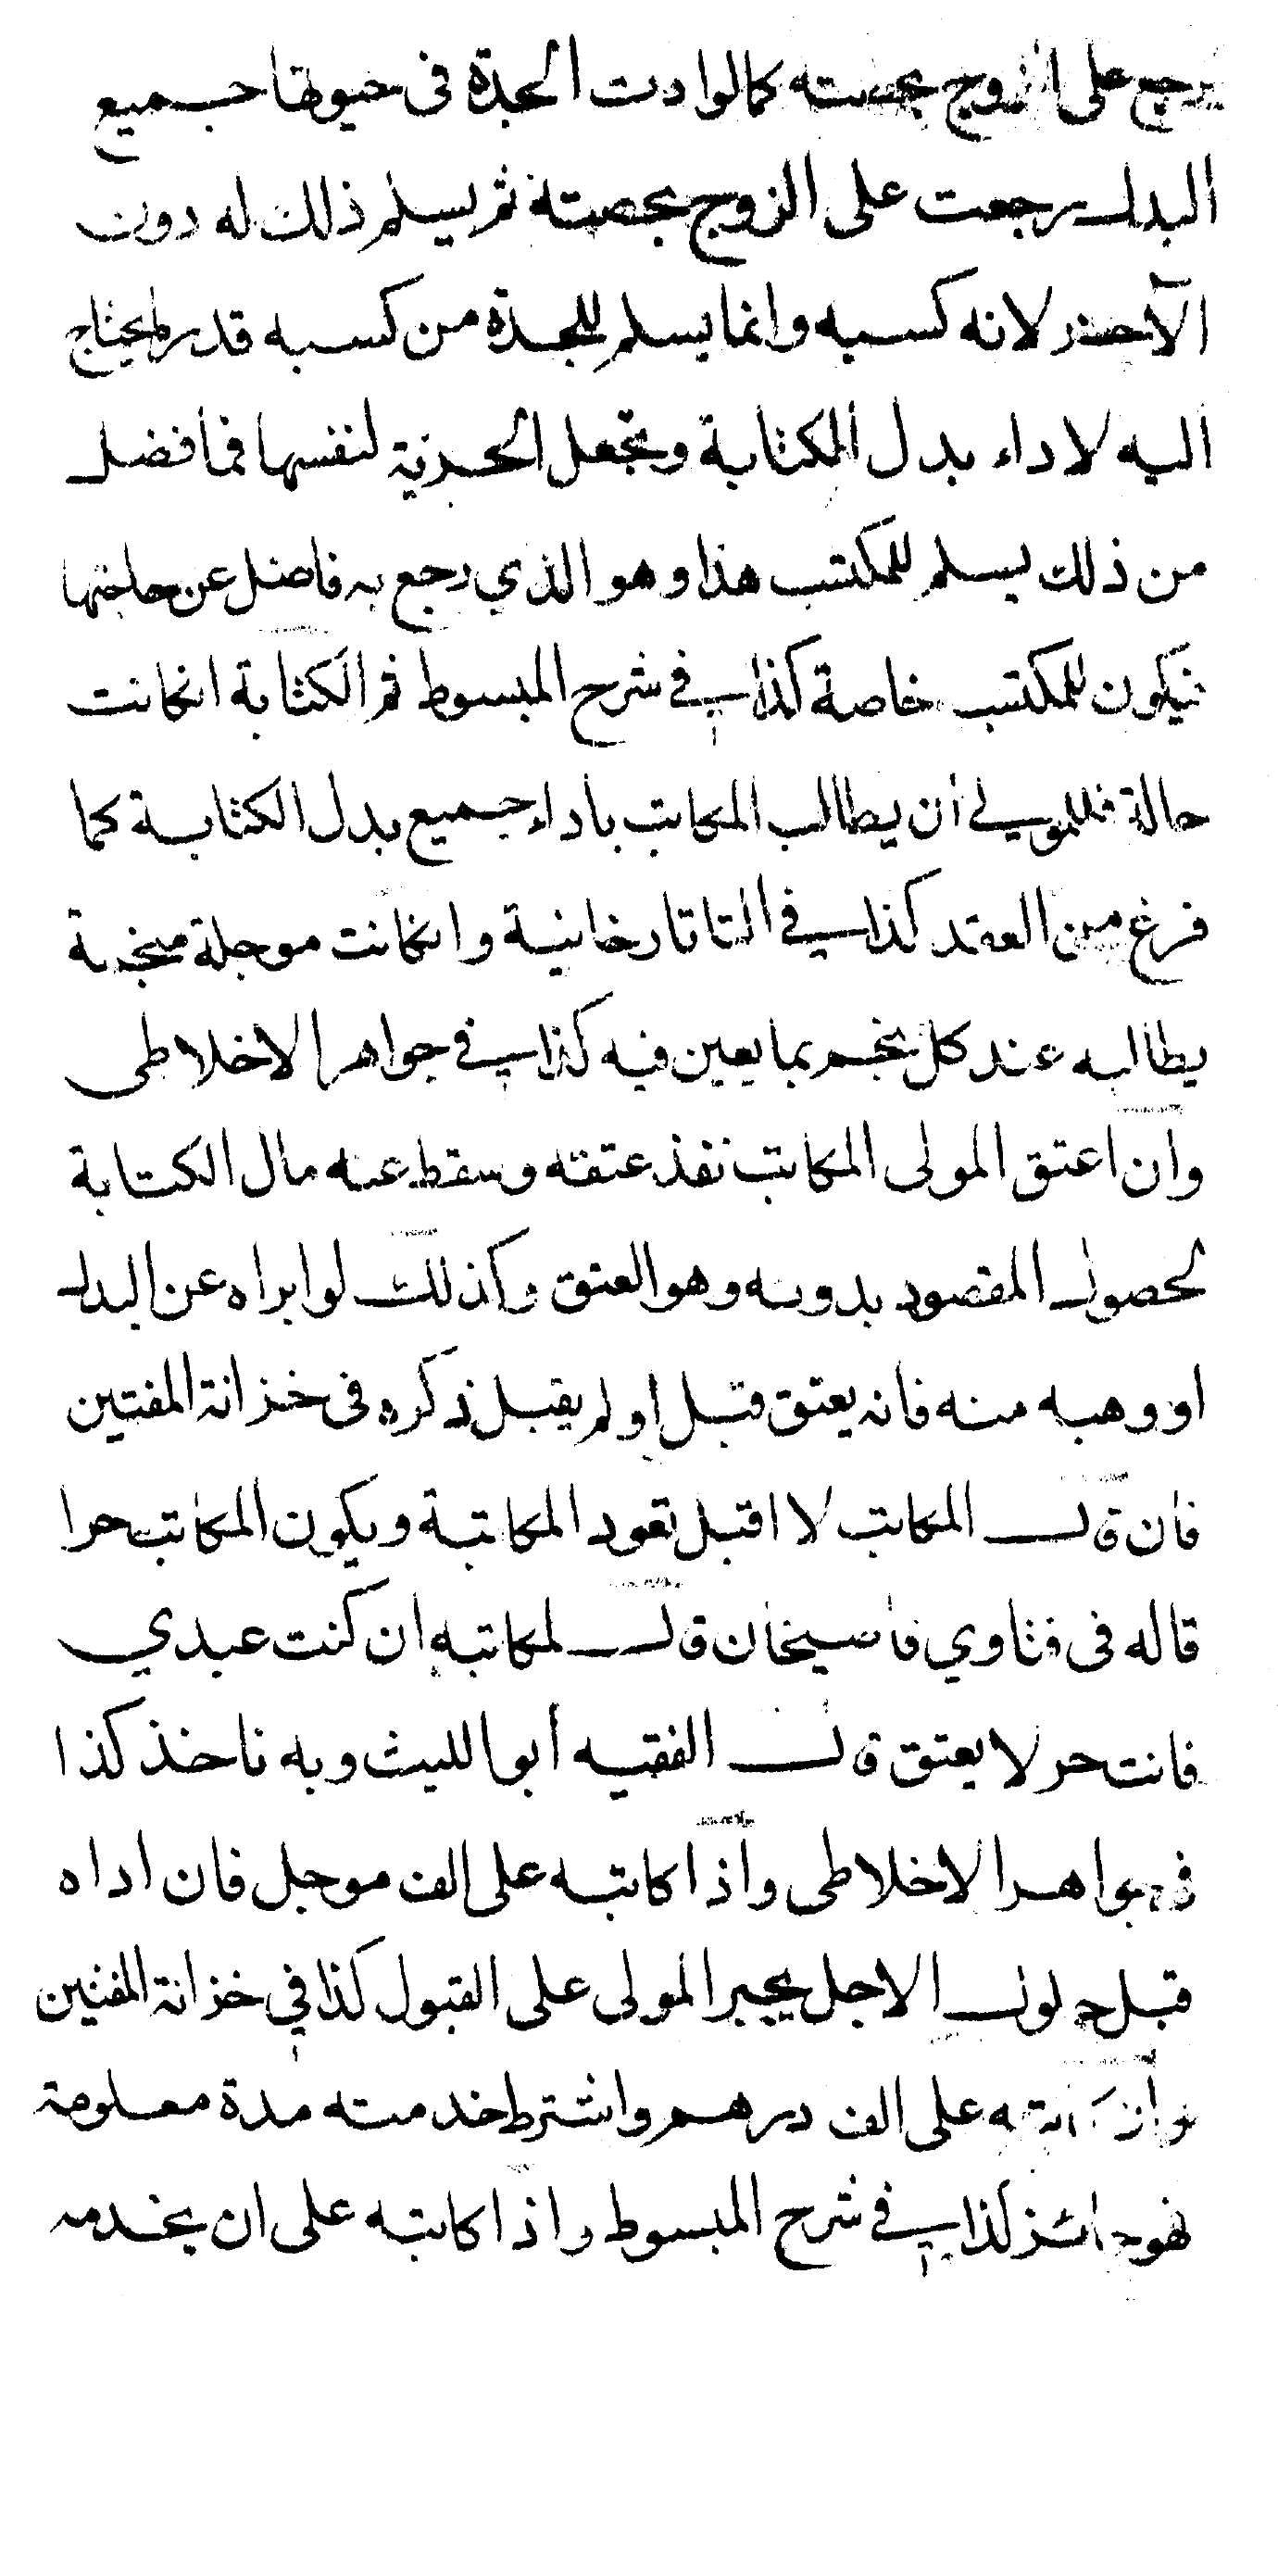 يرجع على الزوج بحصته كما لو ادت الجدة فى حيوتها جميع
البدل رجعت على الزوج بحصته ثم يسلم ذلك له دون
الآخر لانه كسبه وانما يسلم للجدة من كسبه قدر ما يحتاج
اليه لاداء بدل المكتابة وتجعل الحرية لنفسها فما فضل
من ذلك يسلم للمكتسب هذا وهو الذي رجع به فاضل عن حاجتها
فيكون للمكتسب خاصة كذا في شرح المبسوط ثم الكتابة انكانت
حالة فللمولى أن يطالب المكاتب باداء جميع بدل الكتابة كما
فرغ من العقد كذا في التاتارخانية وانكانت موجلة منجمة
يطالبه عند كل نجم بما يعين فيه كذا في جواهر الاخلاطى
وان اعتق المولى المكاتب نفذ عتقه وسقط عنه مال الكتابة
لحصول المقصود بدونه وهو العتق وكذلك لو ابراه عن البدل
او وهبه منه فانه يعتق قبل او لم يقبل ذكره فى خزانة المفتين
فان قال المكاتب لا اقبل تعود المكاتبة ويكون المكاتب حرا
قاله فى فتاوي قاضيخان قال لمكاتبه ان كنت عبدي
فانت حر لا يعتق قال الفقيه أبو الليث وبه ناخذ كذا
في جواهر الاخلاطى واذا كاتبه على الف موجل فان اداه
قبل حلول الاجل يجبر المولى على القبول كذا في خزانة المفتين
وان كاتبه على الف درهم واشترط خدمته مدة معلومة
فهو جائز كذا في شرح المبسوط واذا كاتبه على ان يخدمه